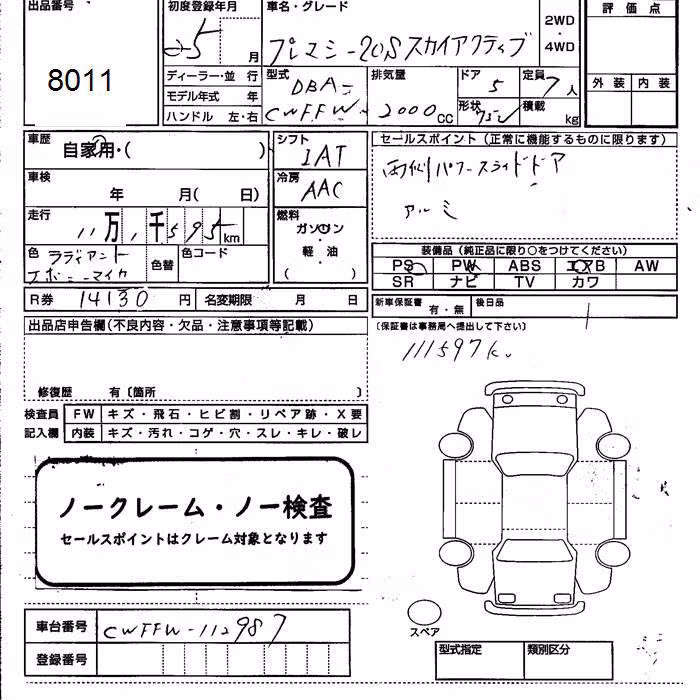 出品番号 初度登録年月 車名・グレード 評価点
8011 25 月 プレマシー20Sスカイアクティブ 2WD・4WD
ディーラー・並 行 型式 DBA- 排気量 ドア 5 定員 7人 外装 内装
モデル年式 年 CWFFW 2000CC 形状 積載 kg
ハンドル 左・右
車歴 自家用・( ) シフト IAT セールスポイント(正常に機能するものに限ります)
両側パワースライドドア
車検 年 月( 日) 冷房 AAC
アルミ
走行 11万1千595km 燃料 ガソリン・軽油 ( )
色 ラディアントエボニーマイカ 色替 色コード
装備品(純正品に限り○をつけてください)
PS PW ABS エアB AW
SR ナビ TV カワ
R券 14130円 名変期限 月 日 新車保証書 有・無 後日品
出品店申告欄(不良内容・欠品・注意事項等記載) (保証書は事務局へ提出して下さい)
111597k.
修復歴 有〔箇所 〕
検査員 FW キズ・飛石・ヒビ割・リペア跡・X要
記入欄 内装 キズ・汚れ・コゲ・穴・スレ・キレ・破レ
ノークレーム・ノー検査
セールスポイントはクレーム対象となります
スペア
車台番号 CWFFW-112987
登録番号 型式指定 類別区分